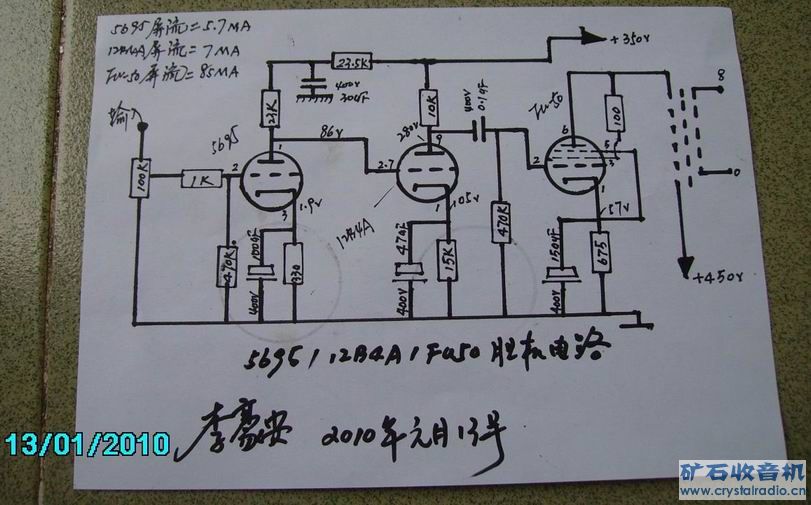 5695屏流=5.7MA
12B4A屏流=7MA
FU-50屏流=85MA
输入
100K
1K
470K
23K
5695
1
2
3
1.9V
150uF
400V
330
400V
30uF
23.5K
86V
2.7
10K
280V
9
12B4A
1
105V
47uF
400V
15K
400V
0.1uF
470K
FU-50
6
2
5
3
1
100
57V
150uF
400V
675
+350V
+450V
8
0
5695/12B4A/FU50胆机电路
李豪安 2010年元月13号
13/01/2010
矿石收音机
www.crystalradio.cn